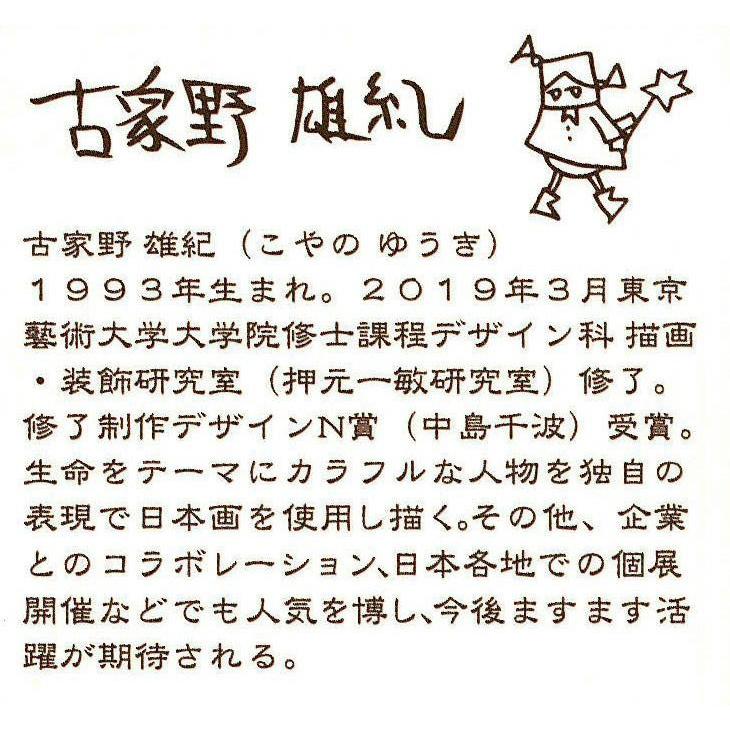 古家野 雄紀
古家野 雄紀（こやの ゆうき）
１９９３年生まれ。２０１９年３月東京
藝術大学大学院修士課程デザイン科 描画
・装飾研究室（押元一敏研究室）修了。
修了制作デザインN賞（中島千波）受賞。
生命をテーマにカラフルな人物を独自の
表現で日本画を使用し描く。その他、企業
とのコラボレーション、日本各地での個展
開催などでも人気を博し、今後ますます活
躍が期待される。